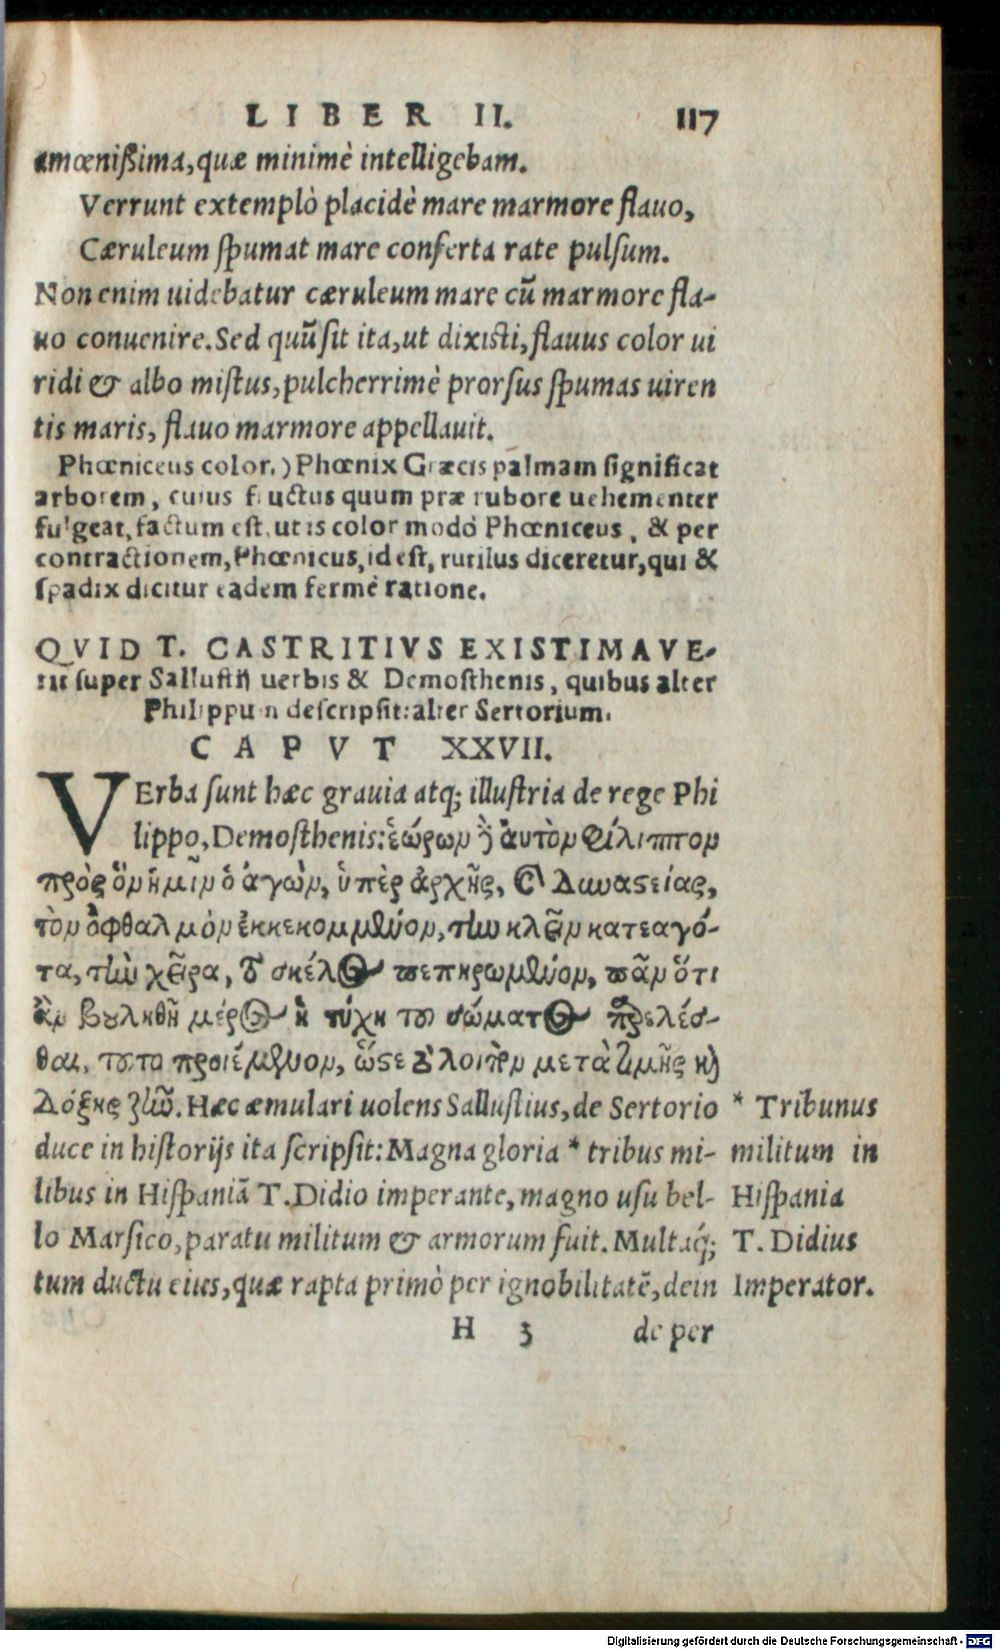 LIBER II. 117
amœnißima, quæ minimè intelligebam.
Verrunt extemplò placidè mare marmore flauo,
Cæruleum spumat mare conferta rate pulsum.
Non enim uidebatur cæruleum mare cũ marmore fla-
uo conuenire. Sed quũ sit ita, ut dixisti, flauus color ui
ridi & albo mistus, pulcherrimè prorsus spumas uiren
tis maris, flauo marmore appellauit.
Phœniceus color.) Phœnix Græcis palmam significat
arborem, cuius fructus quum præ rubore uehementer
fulgeat, factum est, ut is color modò Phœniceus, & per
contractionem, Phœnicus, id est, rutilus diceretur, qui &
spadix dicitur eadem fermè ratione.
QVID T. CASTRITIVS EXISTIMAVE-
rit super Sallustij uerbis & Demosthenis, quibus alter
Philippum descripsit: alter Sertorium.
CAPVT XXVII.
VErba sunt hæc grauia atq; illustria de rege Phi
lippo, Demosthenis: ἑώρων δ' ἀυτὸν Φίλιππον
πρὸς ὃν ἡμῖν ὁ ἀγὼν, ὑπὲρ ἀρχῆς, καὶ δυναστείας,
τὸν ὀφθαλμὸν ἐκκεκομμένον, τὴν κλεῖν κατεαγό-
τα, τὴν χεῖρα, τὸ σκέλος πεπηρωμένον, πᾶν ὅτι
ἂν βουληθῇ μέρος ἡ τύχη τοῦ σώματος παρελέσ-
θαι, τοῦτο προιέμενον, ὥστε τὸ λοιπὸν μετὰ τιμῆς καὶ
δόξης ζῆν. Hæc æmulari uolens Sallustius, de Sertorio
duce in historijs ita scripsit: Magna gloria * tribus mi-
libus in Hispaniã T. Didio imperante, magno usu bel-
lo Marsico, paratu militum & armorum fuit. Multaq́;
tum ductu eius, quæ rapta primò per ignobilitatẽ, dein
* Tribunus
militum in
Hispania
T. Didius
Imperator.
H 3 de per
Digitalisierung gefördert durch die Deutsche Forschungsgemeinschaft - DFG